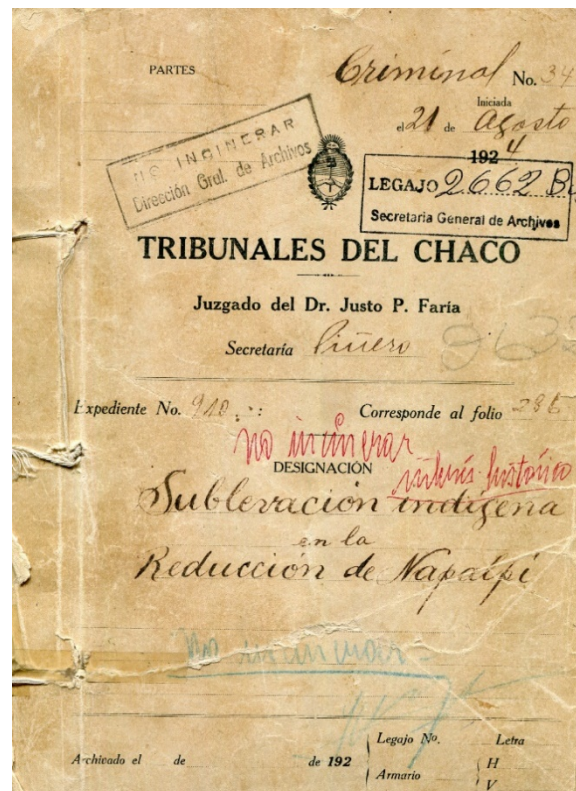 PARTES
Criminal No. 34
Iniciada
el 21 de Agosto
1924
NO INCINERAR
Dirección Gral. de Archivos
LEGAJO 2662 B
Secretaria General de Archivos
TRIBUNALES DEL CHACO
Juzgado del Dr. Justo P. Faría
Secretaría Piñero
Expediente No. 910
Corresponde al folio 286
no incinerar
DESIGNACIÓN
interés histórico
Sublevación indígena
en la
Reducción de Napalpí
No incinerar
Archivado el de de 192
Legajo No. Letra
Armario H
V